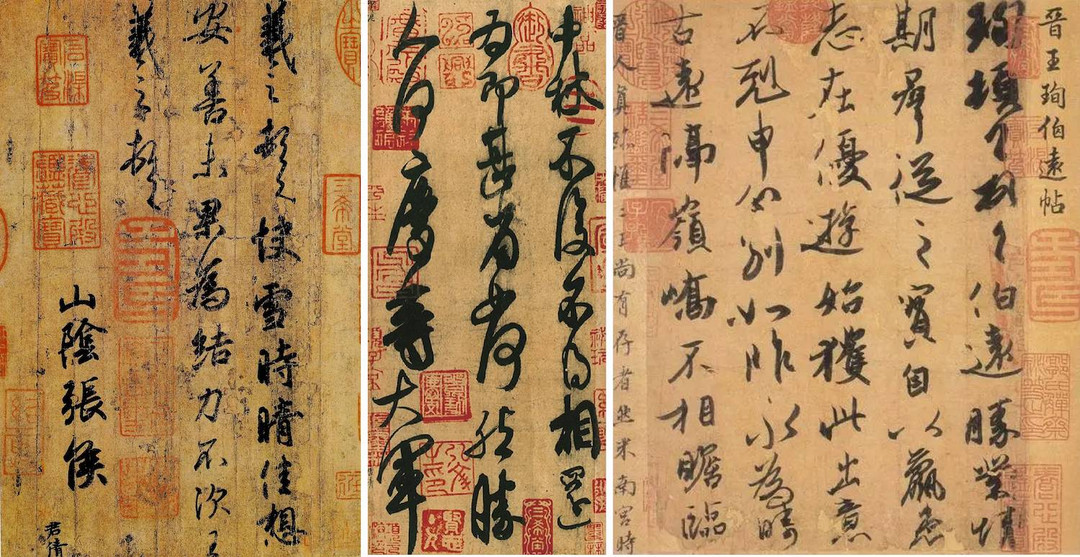 羲之頓首快雪時晴佳想
安善未果為結力不次王
羲之頓首
山陰張侯
君倩
三希堂
石渠寶笈
養心殿鑑藏寶
中秋不復不得相還
為即甚省如何然勝
人何慶等大軍
御書
晉王珣伯遠帖
珣頓首頓首伯遠勝業情
期群從之寶自以羸患
志在優遊始獲此出意
不剋申分別如昨永為疇
古遠隔嶺嶠不相瞻臨
晉人真跡惟二王尚有存者然米南宮時